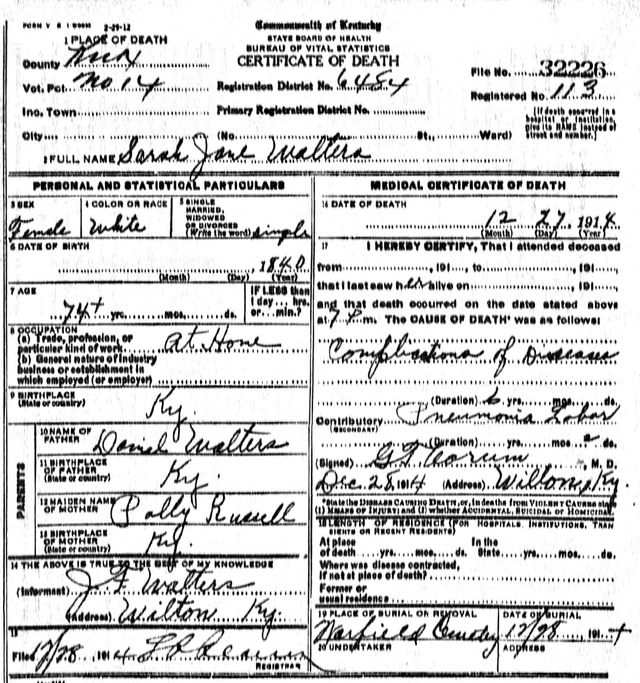 FORM V S 1 2-29-12
Commonwealth of Kentucky
STATE BOARD OF HEALTH
BUREAU OF VITAL STATISTICS
CERTIFICATE OF DEATH
1 PLACE OF DEATH
County Knox
Vot. Pct. No. 14
Inc. Town
City
Registration District No. 6484
Primary Registration District No.
(No. St., Ward)
File No. 32226
Registered No. 113
[If death occurred in a
hospital or institution,
give its NAME instead of
street and number.]
2 FULL NAME Sarah Jane Walters
PERSONAL AND STATISTICAL PARTICULARS
3 SEX
Female
4 COLOR OR RACE
White
5 SINGLE
MARRIED,
WIDOWED
OR DIVORCED
(Write the word) single
6 DATE OF BIRTH
1840
(Month) (Day) (Year)
7 AGE
74+ yrs. mos. ds.
IF LESS than
1 day... hrs.
or... min.?
8 OCCUPATION
(a) Trade, profession, or
particular kind of work At Home
(b) General nature of industry
business or establishment in
which employed (or employer)
9 BIRTHPLACE
(State or country) Ky.
PARENTS
10 NAME OF
FATHER Daniel Walters
11 BIRTHPLACE
OF FATHER
(State or country) Ky.
12 MAIDEN NAME
OF MOTHER Polly Russell
13 BIRTHPLACE
OF MOTHER
(State or country) Ky.
14 THE ABOVE IS TRUE TO THE BEST OF MY KNOWLEDGE
(Informant) J. F. Walters
(Address) Wilton Ky.
15
Filed 12/28 1914
REGISTRAR
MEDICAL CERTIFICATE OF DEATH
16 DATE OF DEATH
12 27, 1914
(Month) (Day) (Year)
17 I HEREBY CERTIFY, That I attended deceased
from , 191 , to , 191 ,
that I last saw her alive on , 191 ,
and that death occurred on the date stated above
at 7 P.m. The CAUSE OF DEATH* was as follows:
Complications of Diseases
(Duration) 6 yrs. mos. ds.
Contributory Pneumonia Lobar
(SECONDARY)
(Duration) yrs. mos. 2 ds.
(Signed) G. T. Corum, M. D.
Dec. 28, 1914 (Address) Wilton, Ky.
*State the DISEASE CAUSING DEATH, or, in deaths from VIOLENT CAUSES state
(1) MEANS OF INJURY; and (2) whether ACCIDENTAL, SUICIDAL or HOMICIDAL.
18 LENGTH OF RESIDENCE (FOR HOSPITALS, INSTITUTIONS, TRANSIENTS OR RECENT RESIDENTS)
At place In the
of death yrs. mos. ds. State yrs. mos. ds.
Where was disease contracted,
if not at place of death?
Former or
usual residence
19 PLACE OF BURIAL OR REMOVAL
DATE OF BURIAL
12/28 1914
20 UNDERTAKER
ADDRESS